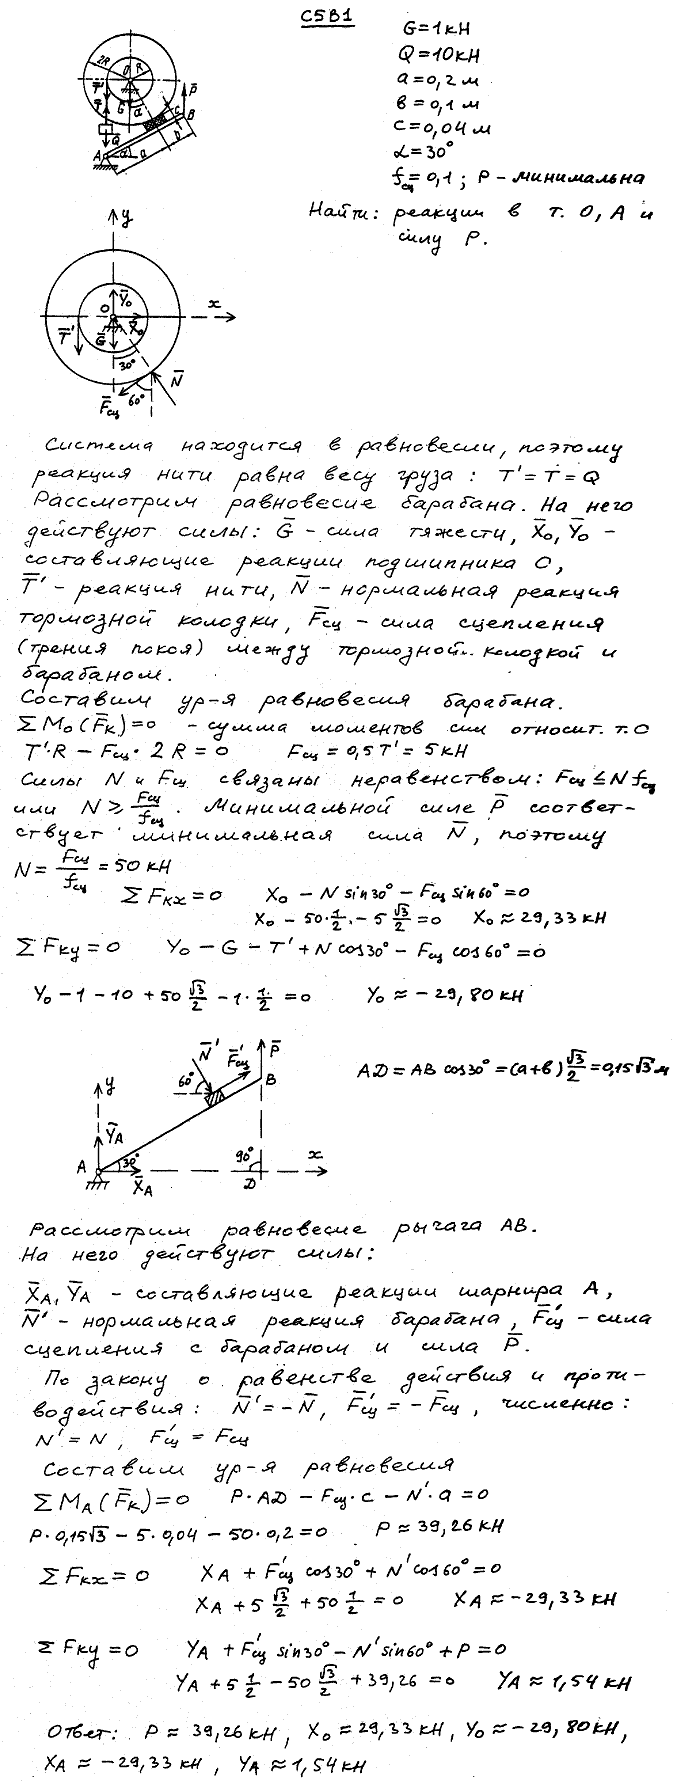 С5В1
G=1кН
Q=10кН
a=0,2 м
в=0,1 м
c=0,04 м
α=30°
fсц=0,1; P - минимальна
Найти: реакции в т. O, A и
силу P.
2R
O
R
T̄'
T̄
G
α
Q
A
α
a
C
B
P̄
b
y
O
Ȳo
X̄o
x
T̄'
Ḡ
30°
N̄
F̄сц
60°
Система находится в равновесии, поэтому
реакция нити равна весу груза: T'=T=Q
Рассмотрим равновесие барабана. На него
действуют силы: Ḡ - сила тяжести, X̄o, Ȳo -
составляющие реакции подшипника O,
T̄' - реакция нити, N̄ - нормальная реакция
тормозной колодки, F̄сц - сила сцепления
(трения покоя) между тормозной колодкой и
барабаном.
Составим ур-я равновесия барабана.
ΣMo(F̄к)=0 - сумма моментов сил относит. т.O
T'·R - Fсц·2R=0 Fсц=0,5T'=5кН
Силы N и Fсц связаны неравенством: Fсц≤Nfсц
или N≥Fсц/fсц. Минимальной силе P̄ соответ-
ствует минимальная сила N̄, поэтому
N=Fсц/fсц=50кН
ΣFкx=0 Xo - N sin30° - Fсц sin60°=0
Xo - 50·1/2 - 5 √3/2=0 Xo≈29,33кН
ΣFкy=0 Yo - G - T' + N cos30° - Fсц cos60°=0
Yo - 1 - 10 + 50 √3/2 - 1·1/2=0 Yo≈-29,80кН
N̄'
F̄'сц
P̄
60°
B
y
ȲA
A
30°
X̄A
90°
D
x
AD=AB cos30°=(a+в)√3/2=0,15√3м
Рассмотрим равновесие рычага AB.
На него действуют силы:
X̄A, ȲA - составляющие реакции шарнира A,
N̄' - нормальная реакция барабана, F̄'сц - сила
сцепления с барабаном и сила P̄.
По закону о равенстве действия и проти-
водействия: N̄'=-N̄, F̄'сц=-F̄сц, численно:
N'=N, F'сц=Fсц
Составим ур-я равновесия
ΣMA(F̄к)=0 P·AD - Fсц·c - N'·a=0
P·0,15√3 - 5·0,04 - 50·0,2=0 P≈39,26кН
ΣFкx=0 XA + F'сц cos30° + N'cos60°=0
XA + 5 √3/2 + 50 1/2=0 XA≈-29,33кН
ΣFкy=0 YA + F'сц sin30° - N'sin60° + P=0
YA + 5 1/2 - 50 √3/2 + 39,26=0 YA≈1,54кН
Ответ: P≈39,26кН, Xo≈29,33кН, Yo≈-29,80кН,
XA≈-29,33кН, YA≈1,54кН